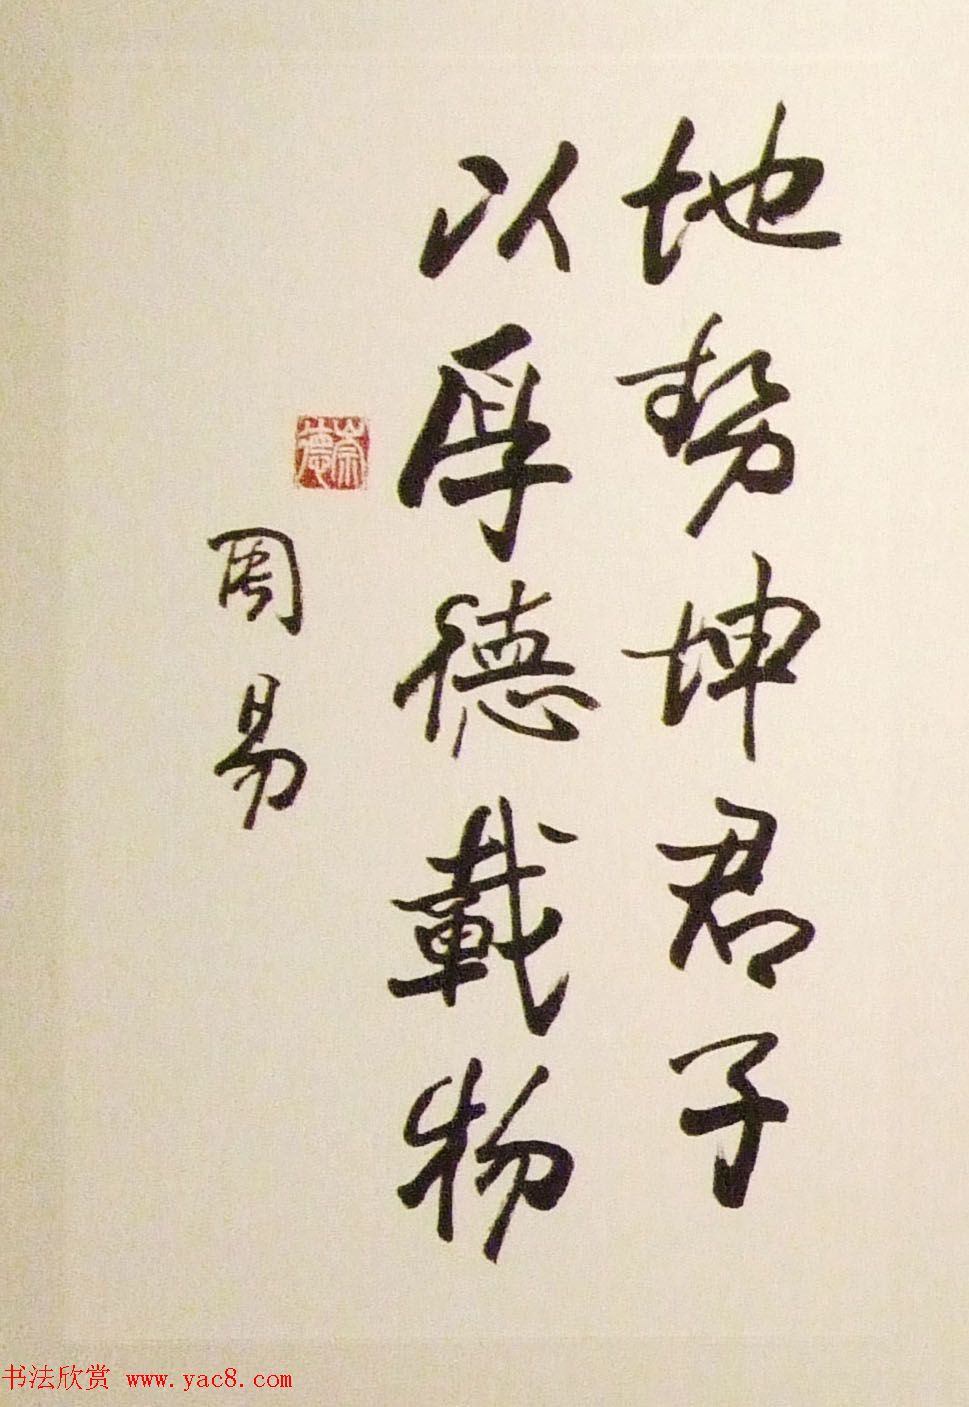 地势坤君子
以厚德載物
崇德
周易
书法欣赏 www.yac8.com